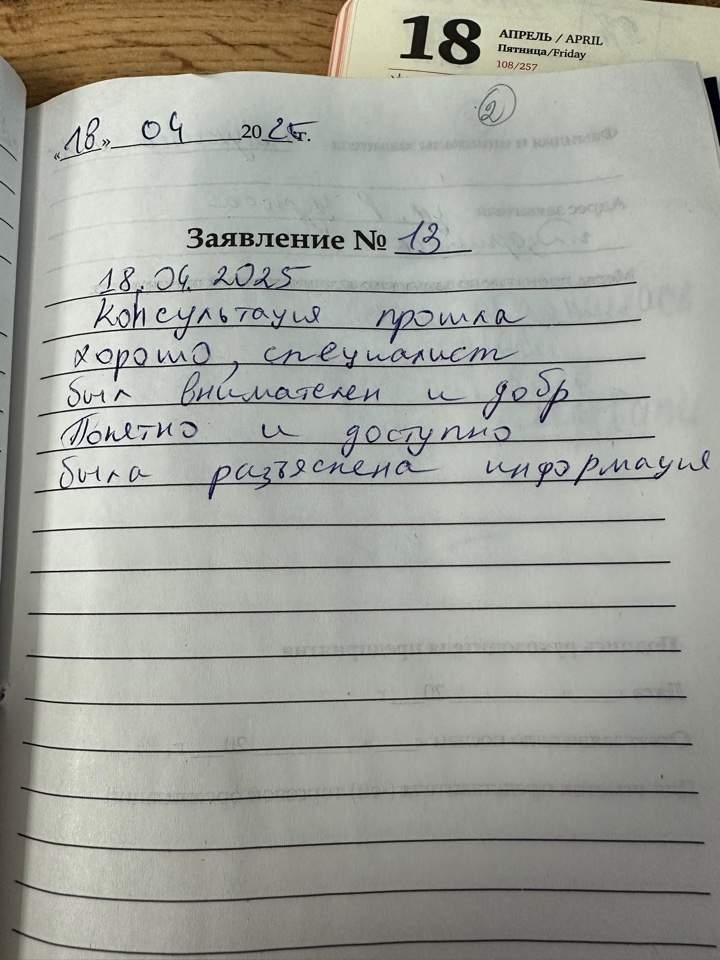 18 АПРЕЛЬ / APRIL
Пятница/Friday
108/257
2
«18» 04 2025г.
Заявление № 13
18.04.2025
Консультация прошла
хорошо, специалист
был внимателен и добр
Понятно и доступно
была разъяснена информация